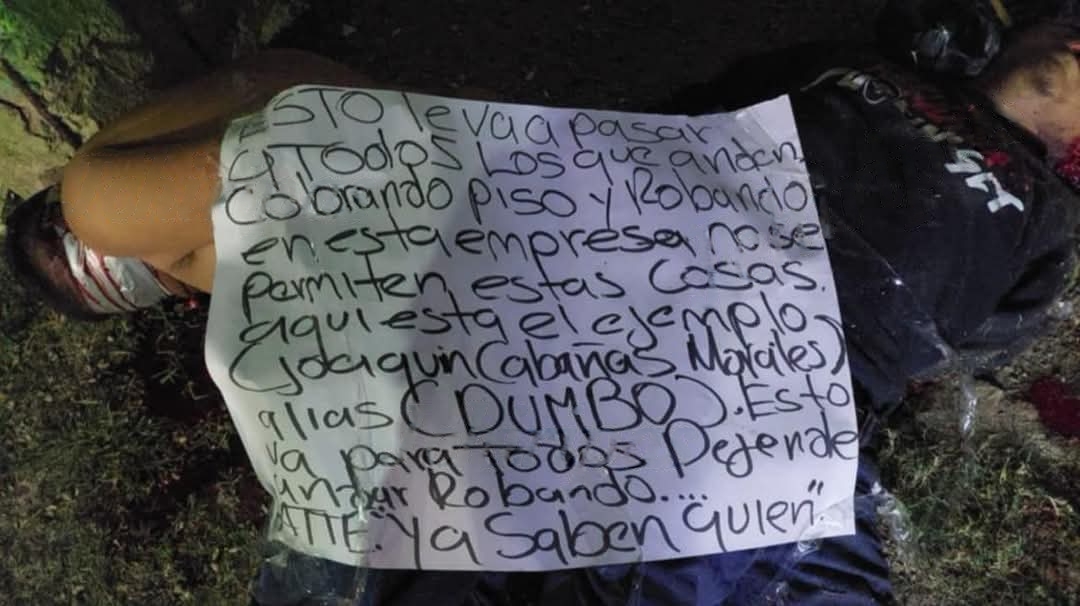 ESTO le va a pasar
a Todos Los que anden
Cobrando piso y Robando
en esta empresa no se
permiten estas Cosas.
aqui esta el ejemplo
(Joaquin Cabañas Morales)
alias (DUMBO). Esto
va para Todos Dejen de
andar Robando....
ATTE: "Ya Saben quien".